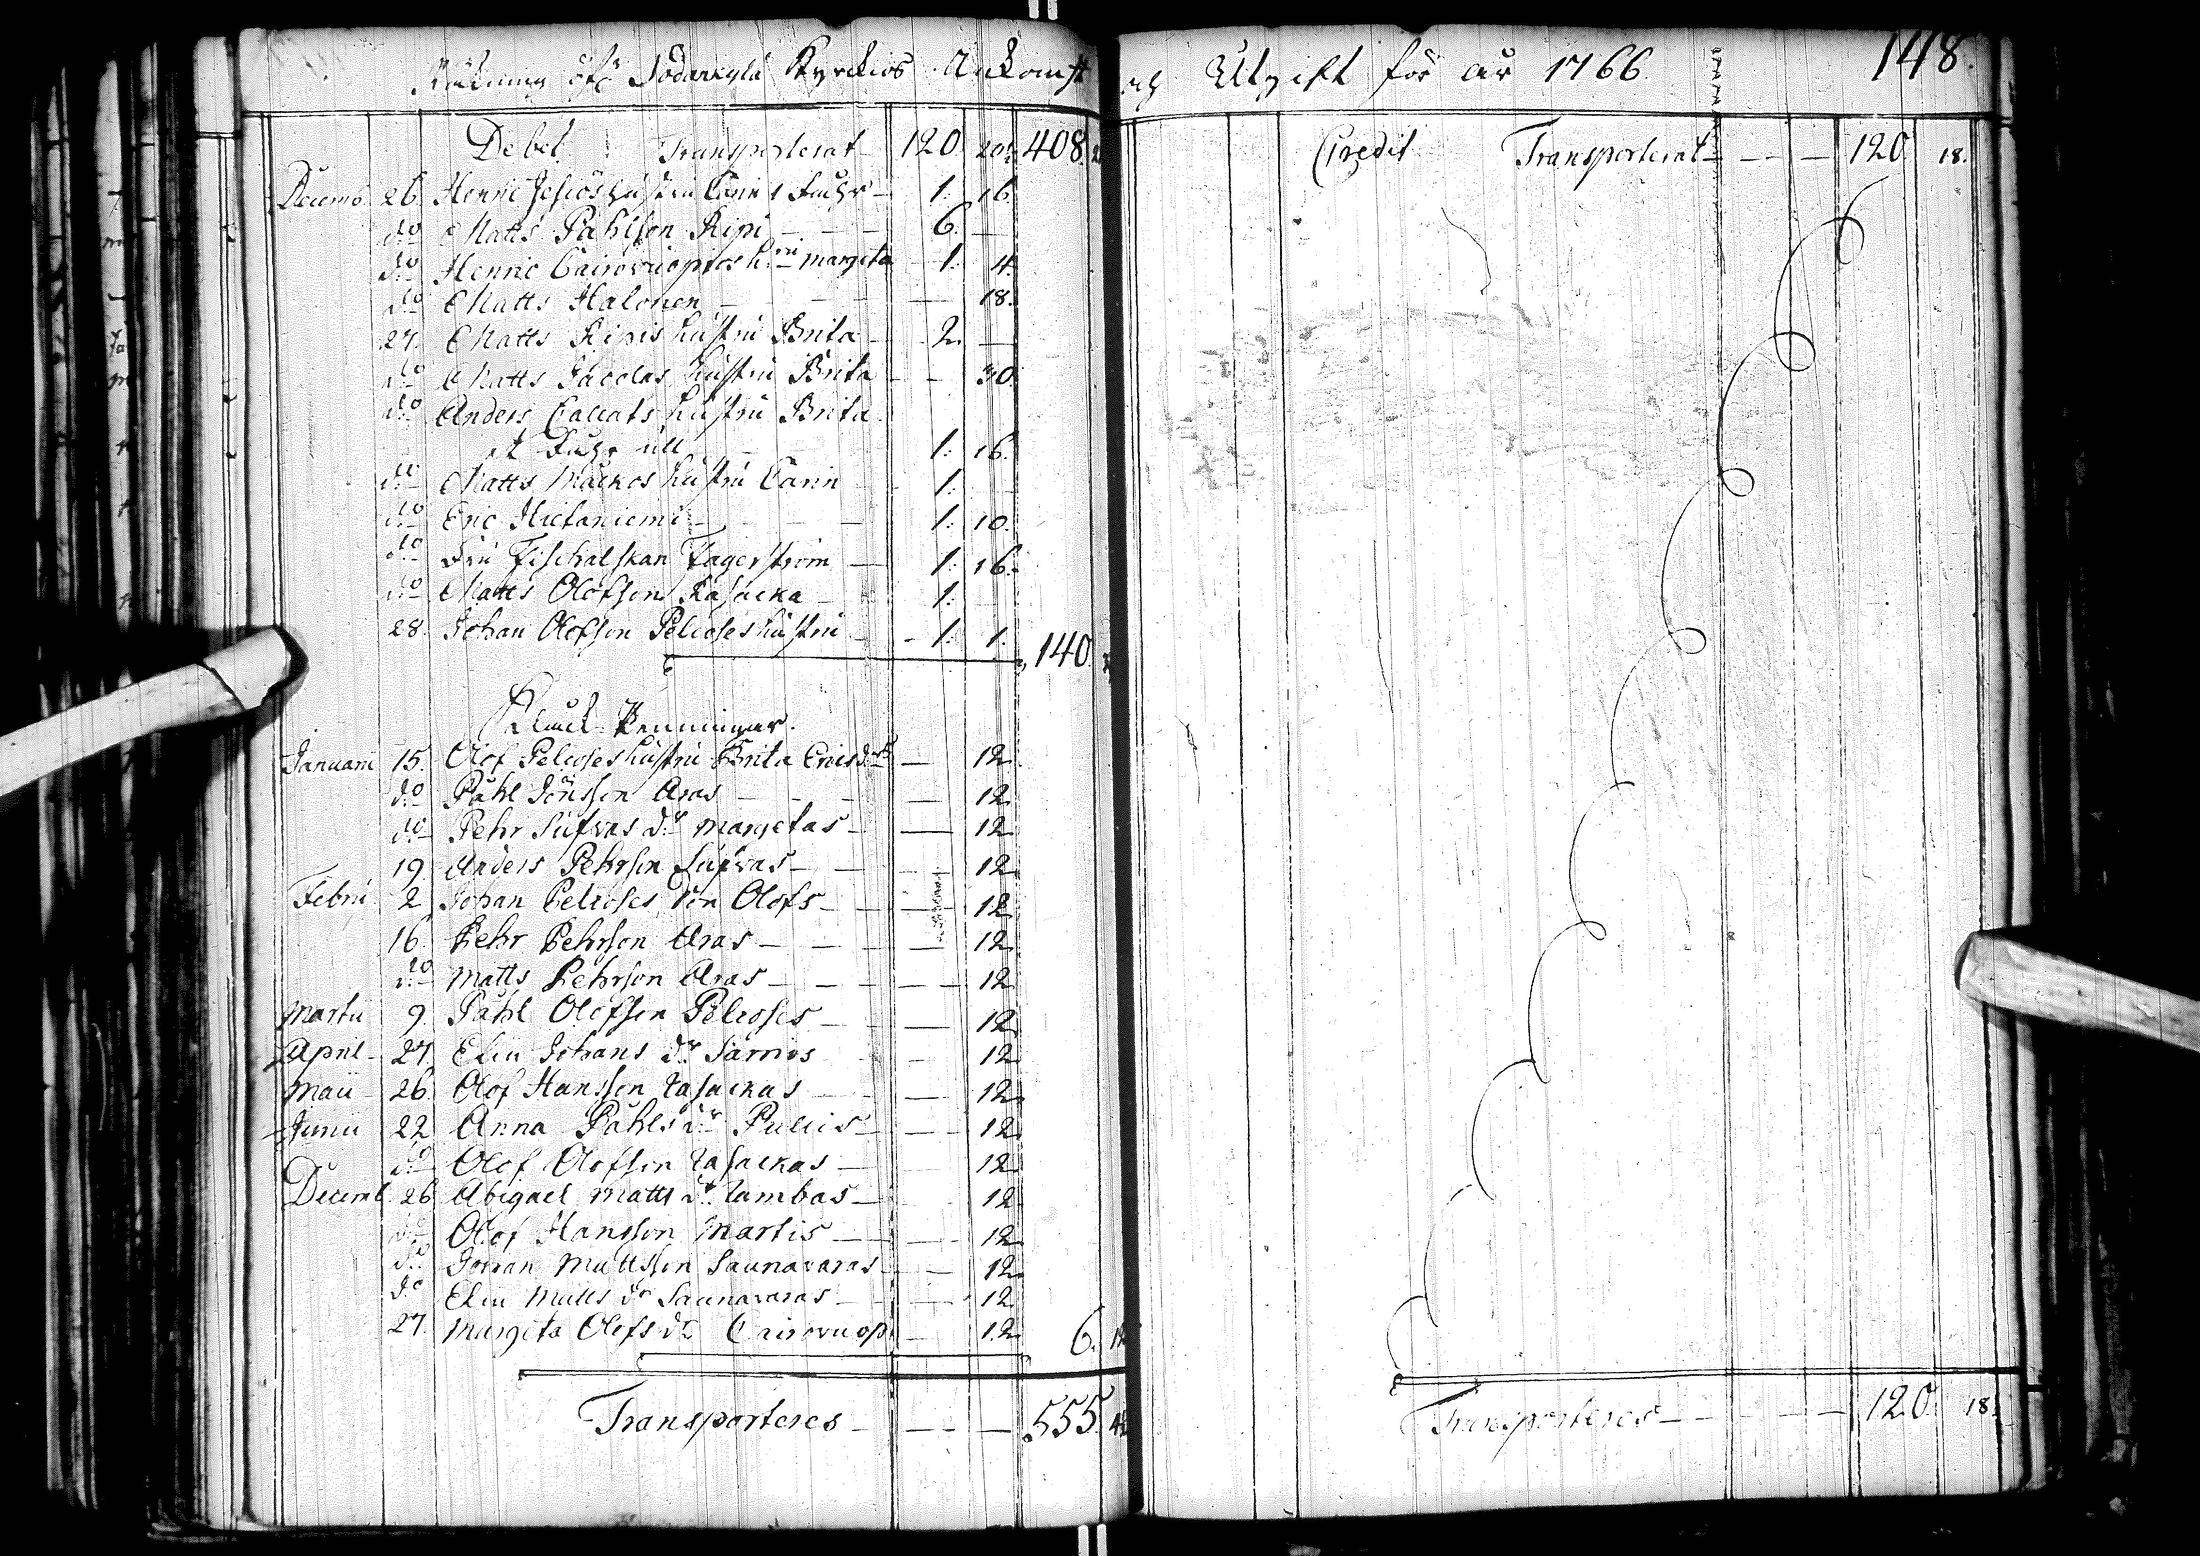 Räkning öfr Sodankylä Kyrckios Ankomst
och Utgift för år 1766. 148.
Debet Transporterat 120 20 408
Decemb. 26. Henric hustru Carin 1. 16.
do Matts Påhlson Kipi — — — 6. —
do Henric hri margeta 1. 4.
do Matts Halonen — — — 18.
27. Matts Kipis hustru Brita — 2. —
do Matts hustru Brita — — 30.
do Anders hustru Brita
ull — 1. 16.
do Matts hustru Carin 1.
do Eric Hietaniemi — — 1. 10.
do Fru Fischalskan Fagerström — 1. 16.
do Matts Olofson — 1.
28. Johan Olofson Pelcoses hustru — 1. 1. 140.
Klock Penningar.
Januarii 15. Olof Pelcoses hustru Brita Ericsdrs — 12.
do Påhl Jönsson Aras — — — 12.
do Pehr dr margetas — — 12.
19. Anders Pehrson — — 12.
Febru 2 Johan Pelcoses son Olofs — — 12.
16. Pehr Pehrson Aras — — — 12.
do Matts Pehrson Aras — — — 12.
Martii 9. Påhl Olofson Pelcoses — — 12.
April 27. Elin Johans dr — 12.
Maii 26. Olof Hansson — 12.
Junii 22. Anna Påhls dr — — 12.
do Olof Olofson — — 12.
Decemb 26 Abigael Matts dr — 12.
do Olof Hansson Martis — — 12.
do Johan Mattsson Saunavaras — — 12.
do Elin Matts dr Saunavaras — — 12.
27. Margeta Olofs dr — 12. 6. 12
Transporteres — — — 555.
Credit Transporterat — — — 120. 18.
Transporteres — — — 120. 18.